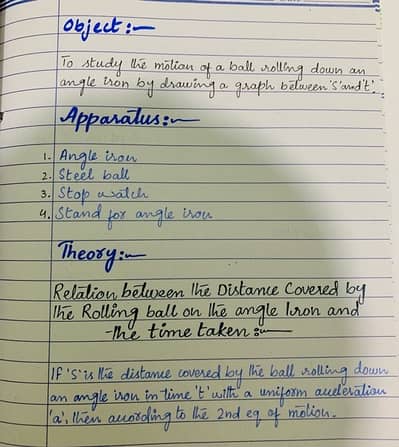 Object:-
To study the motion of a ball rolling down an
angle iron by drawing a graph between 's' and 't'.
Apparatus:-
1. Angle iron
2. Steel ball
3. Stop watch
4. Stand for angle iron
Theory:-
Relation between the Distance Covered by
the Rolling ball on the angle Iron and
the time taken:-
If 's' is the distance covered by the ball rolling down
an angle iron in time 't' with a uniform acceleration
'a', then according to the 2nd eq of motion.